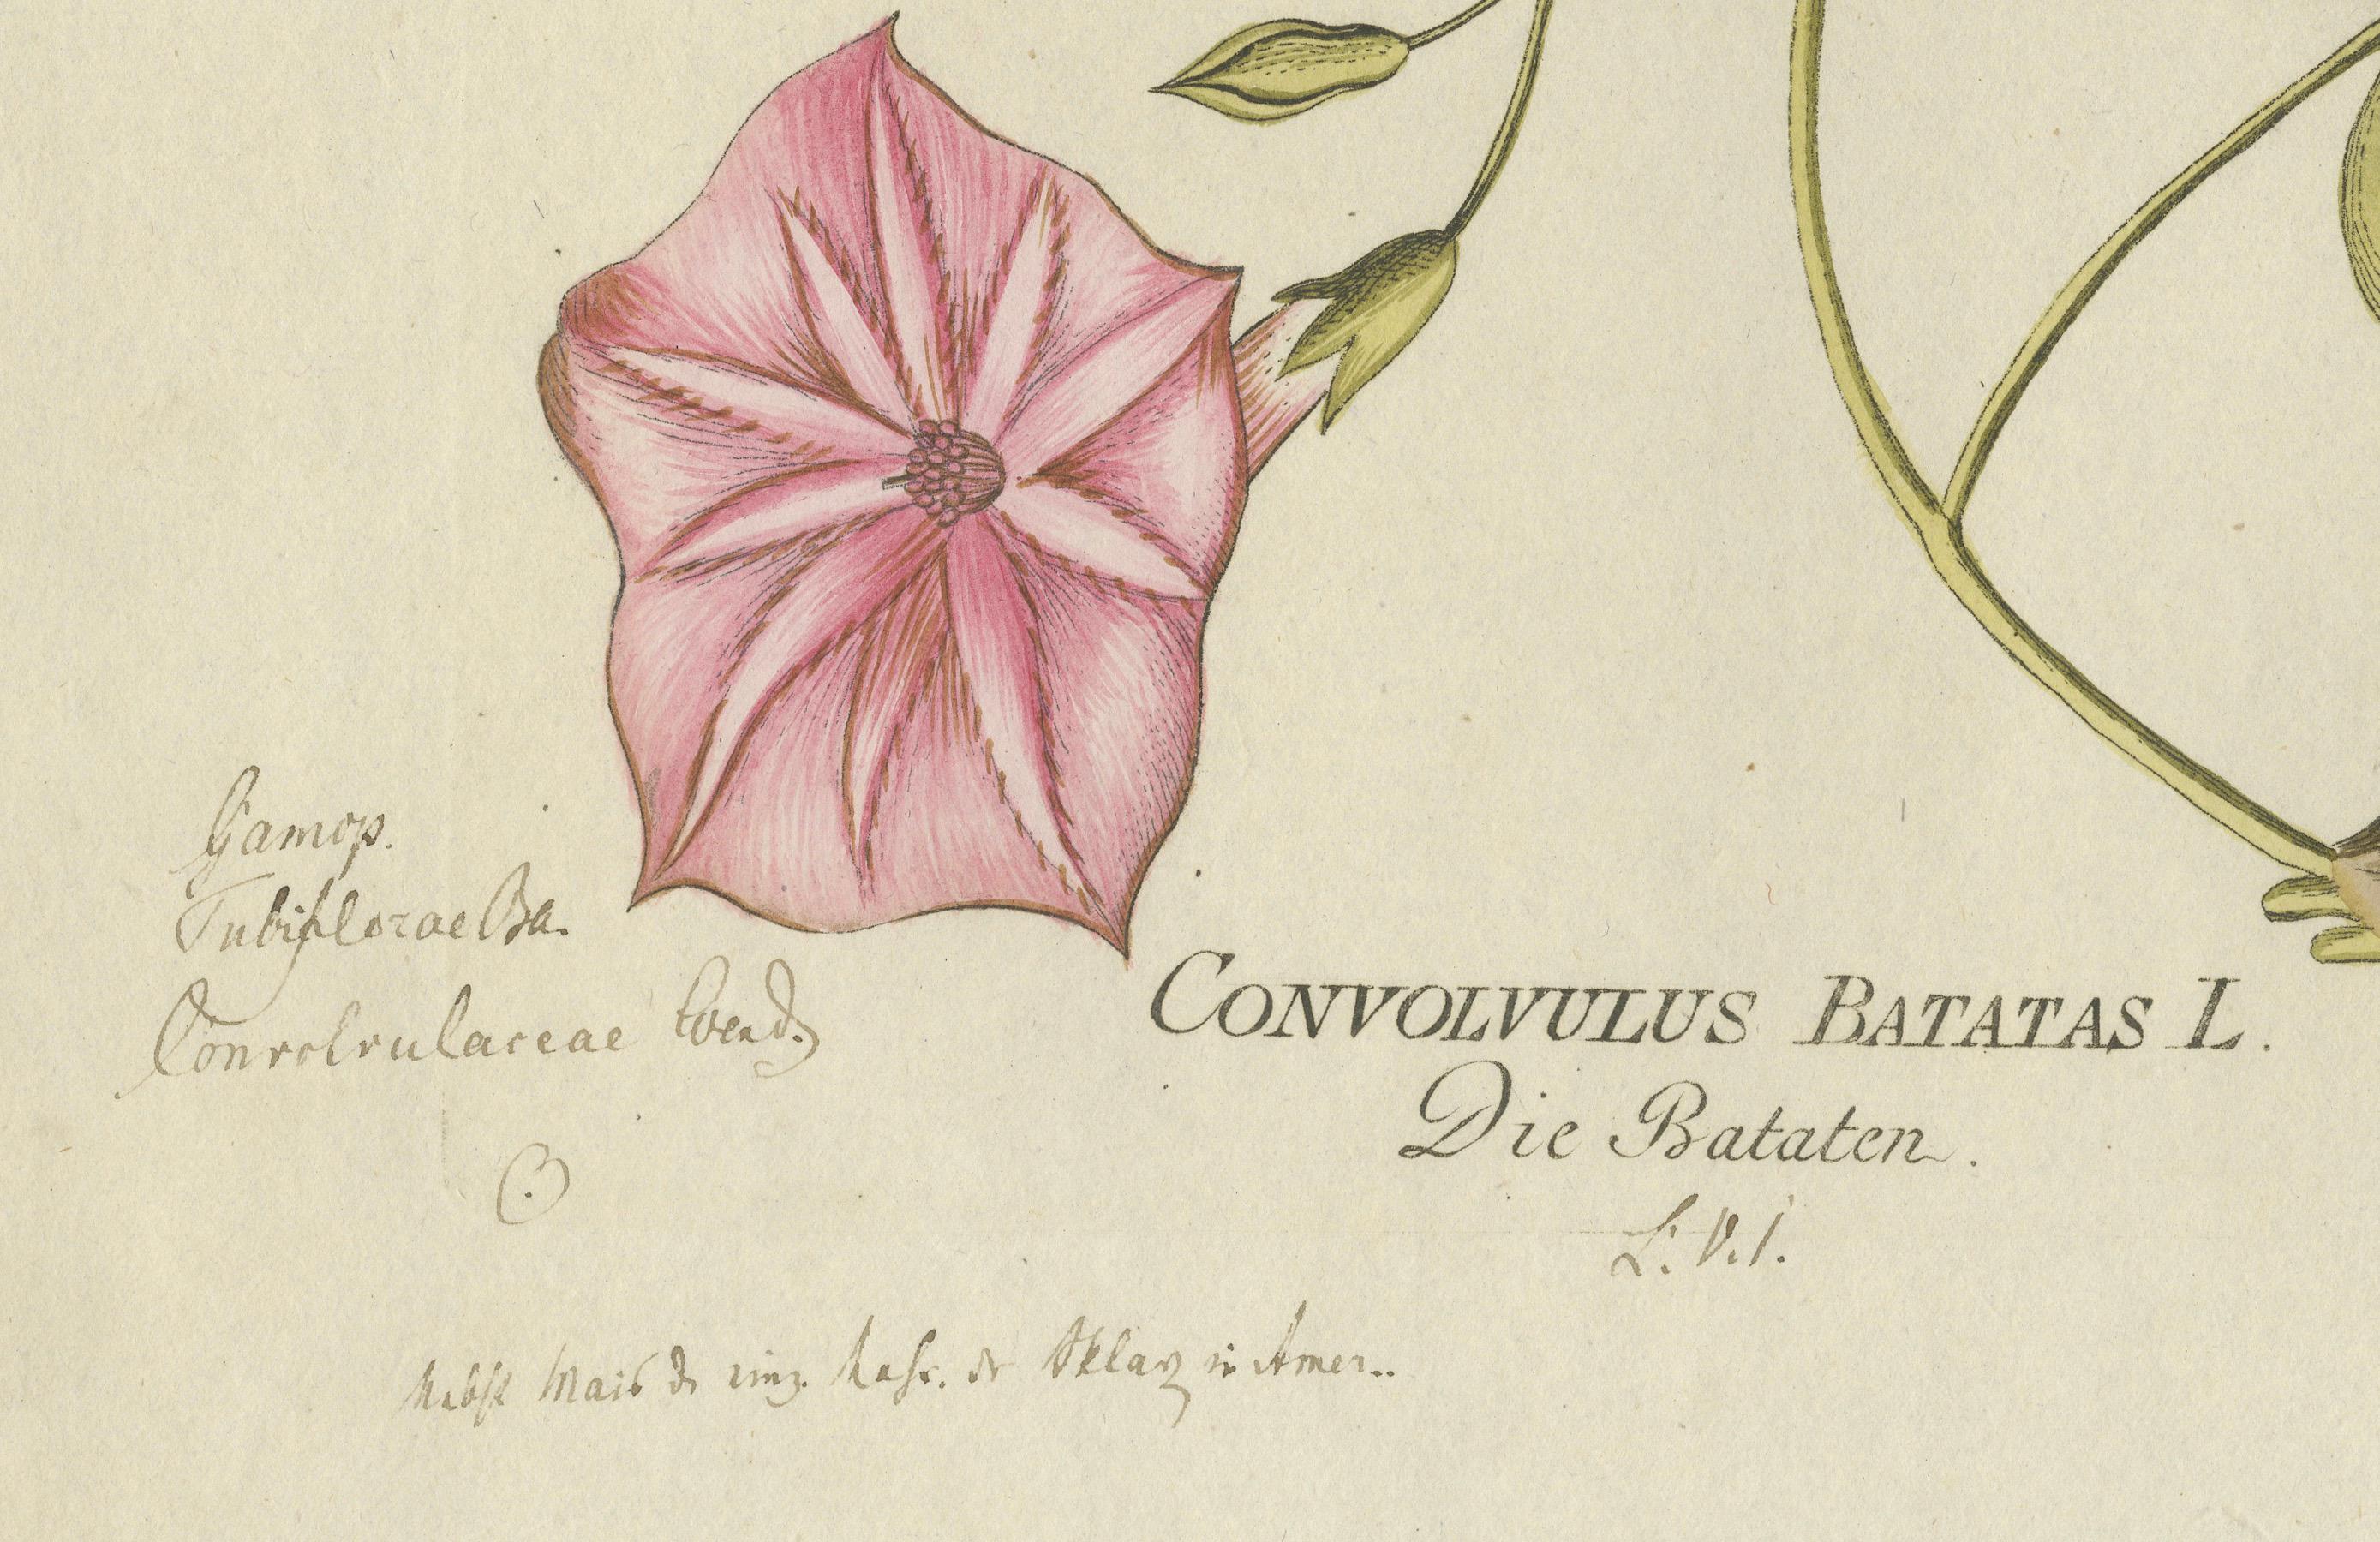 Gamop.
Tubiflorae Ba.
Convolvulaceae
CONVOLVULUS BATATAS L.
Die Bataten.
L. V. 1.
Nebst Mais d. einz. Nahr. dr Sklav in Amer..